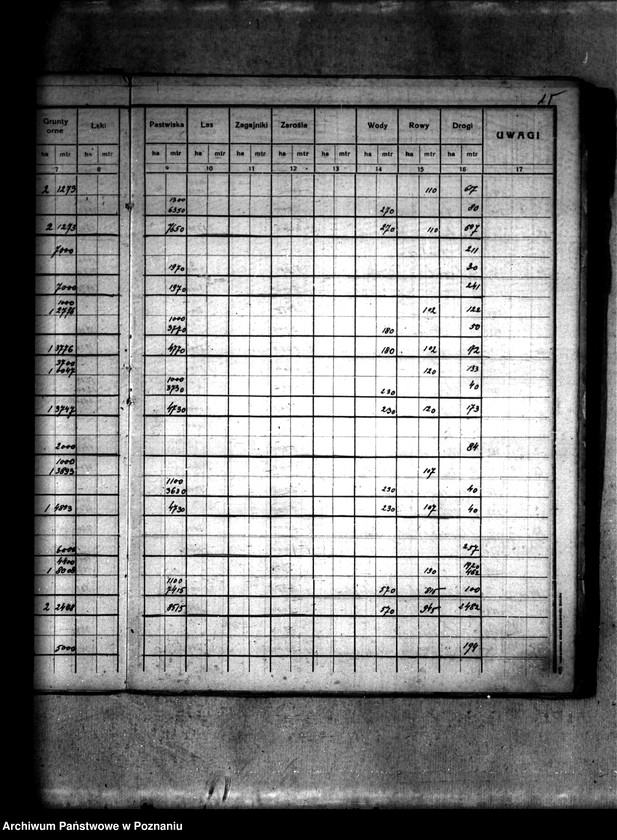 25
Grunty orne Łąki Pastwiska Las Zagajniki Zarośla Wody Rowy Drogi UWAGI
ha mtr ha mtr ha mtr ha mtr ha mtr ha mtr ha mtr ha mtr ha mtr ha mtr
7 8 9 10 11 12 13 14 15 16 17
2 1273 110
1300
6350 270 80
2 1273 7650 270 110
7000 211
1970 30
7000 1970 241
1000
102 122
1000
180 50
1 3776 4770 180 102
120 133
1000
3730 230 40
1 3747 4730 230 120 173
2000 84
1000
1 3893 107
1100
3630 230 40
1 4893 4730 230 107 40
6000 257
130
1100
7415 570 815 100
8515 570 945 2482
5000 194
Archiwum Państwowe w Poznaniu